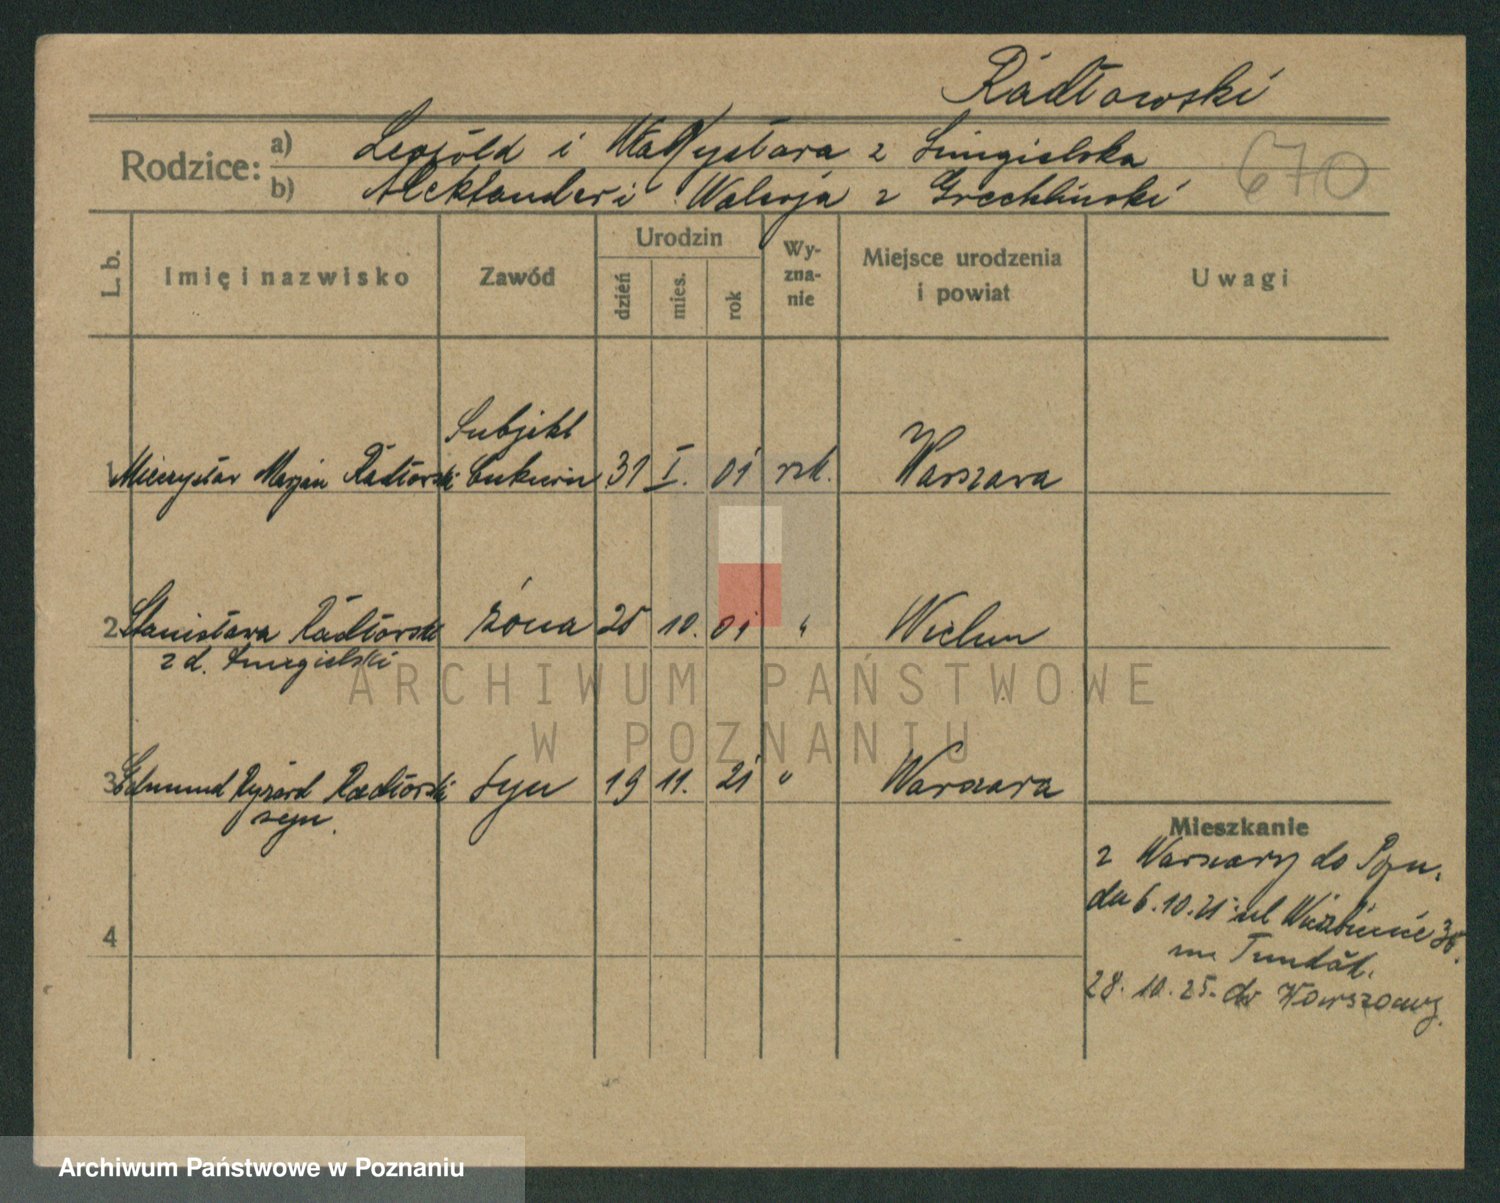 Radłowski
Rodzice:
a) Leopold i Władysława z Smigielska
b) Aleksander i Walerja z Grechlinski
670
L. b.
Imię i nazwisko
Zawód
Urodzin
dzień
mies.
rok
Wy-
zna-
nie
Miejsce urodzenia
i powiat
Uwagi
Subjekt
1 Mieczysław Marjan Radłowski cukiern 31 I. 01 rzk. Warszawa
2 Stanisława Radłowski żona 25 10. 01 " Wielun
z d. Smigielski
3 Edmund Ryszard Radłowski syn 19 11. 21 " Warszawa
syn.
4
Mieszkanie
z Warszawy do Pozn.
da 6.10.21 ul 38.
28. 10. 25. do Warszawy.
ARCHIWUM PAŃSTWOWE
W POZNANIU
Archiwum Państwowe w Poznaniu